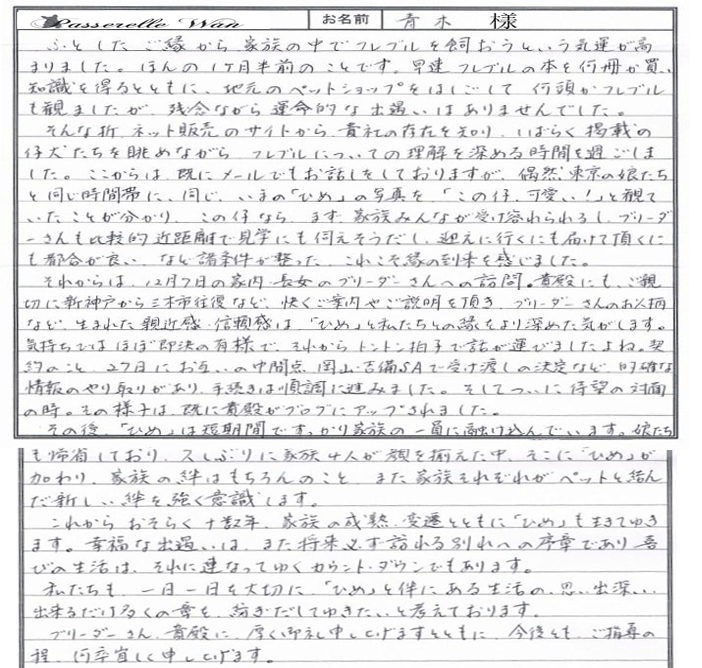 Passerelle Wan お名前 青木 様
ふとしたご縁から家族の中でフレブルを飼おうという気運が高
まりました。ほんの1ケ月半前のことです。早速フレブルの本を何冊か買い、
知識を得るとともに、地元のペットショップをはしごして 何頭かフレブル
も観ましたが、残念ながら運命的な出遇いはありませんでした。
そんな折、ネット販売のサイトから、貴社の存在を知り、しばらく掲載の
仔犬たちを眺めながら フレブルについての理解を深める時間を過ごしま
した。ここからは、既にメールでもお話しをしておりますが、偶然、東京の娘たち
と同じ時間帯に、同じ、いまの「ひめ」の写真を、「この仔、可愛い!」と観て
いたことが分かり、この仔なら、まず、家族みんなが受け容れられるし、ブリーダ
ーさんも比較的近距離で見学にも伺えそうだし、迎えに行くにも届けて頂くに
も都合が良い、など諸条件が整った、これこそ縁の到来を感じました。
それからは、12月7日の家内・長女のブリーダーさんへの訪問。貴殿にも、ご親
切に新神戸から三木市往復など、快くご案内やご説明を頂き、ブリーダーさんのお人柄
など、生まれた親近感・信頼感は、「ひめ」と私たちとの縁をより深めた気がします。
気持ちではほぼ即決の有様で、それからトントン拍子で話が運びましたよね。契
約のこと、27日にお互いの中間点、岡山・吉備SAで受け渡しの決定など、的確な
情報のやり取りがあり、手続きは順調に進みました。そしてついに待望の対面
の時。その様子は、既に貴殿がブログにアップされました。
その後、「ひめ」は短期間ですっかり家族の一員に融け込んでいます。娘たち
も帰省しており、久しぶりに家族4人が顔を揃えた中、そこに「ひめ」が
加わり、家族の絆はもちろんのこと、また家族それぞれがペットと結ん
だ新しい絆を強く意識します。
これからおそらく十数年、家族の成熟・変遷とともに「ひめ」も生きてゆき
ます。幸福な出遇いは、また将来必ず訪れる別れへの序章であり、喜
びの生活は、それに連なってゆくカウント・ダウンでもあります。
私たちも、一日一日を大切に、「ひめ」と伴にある生活の、思い出深い、
出来るだけ多くの章を、紡ぎだしてゆきたいと考えております。
ブリーダーさん、貴殿に、厚く御礼申し上げますとともに、今後とも、ご指導の
程、何卒宜しく申し上げます。